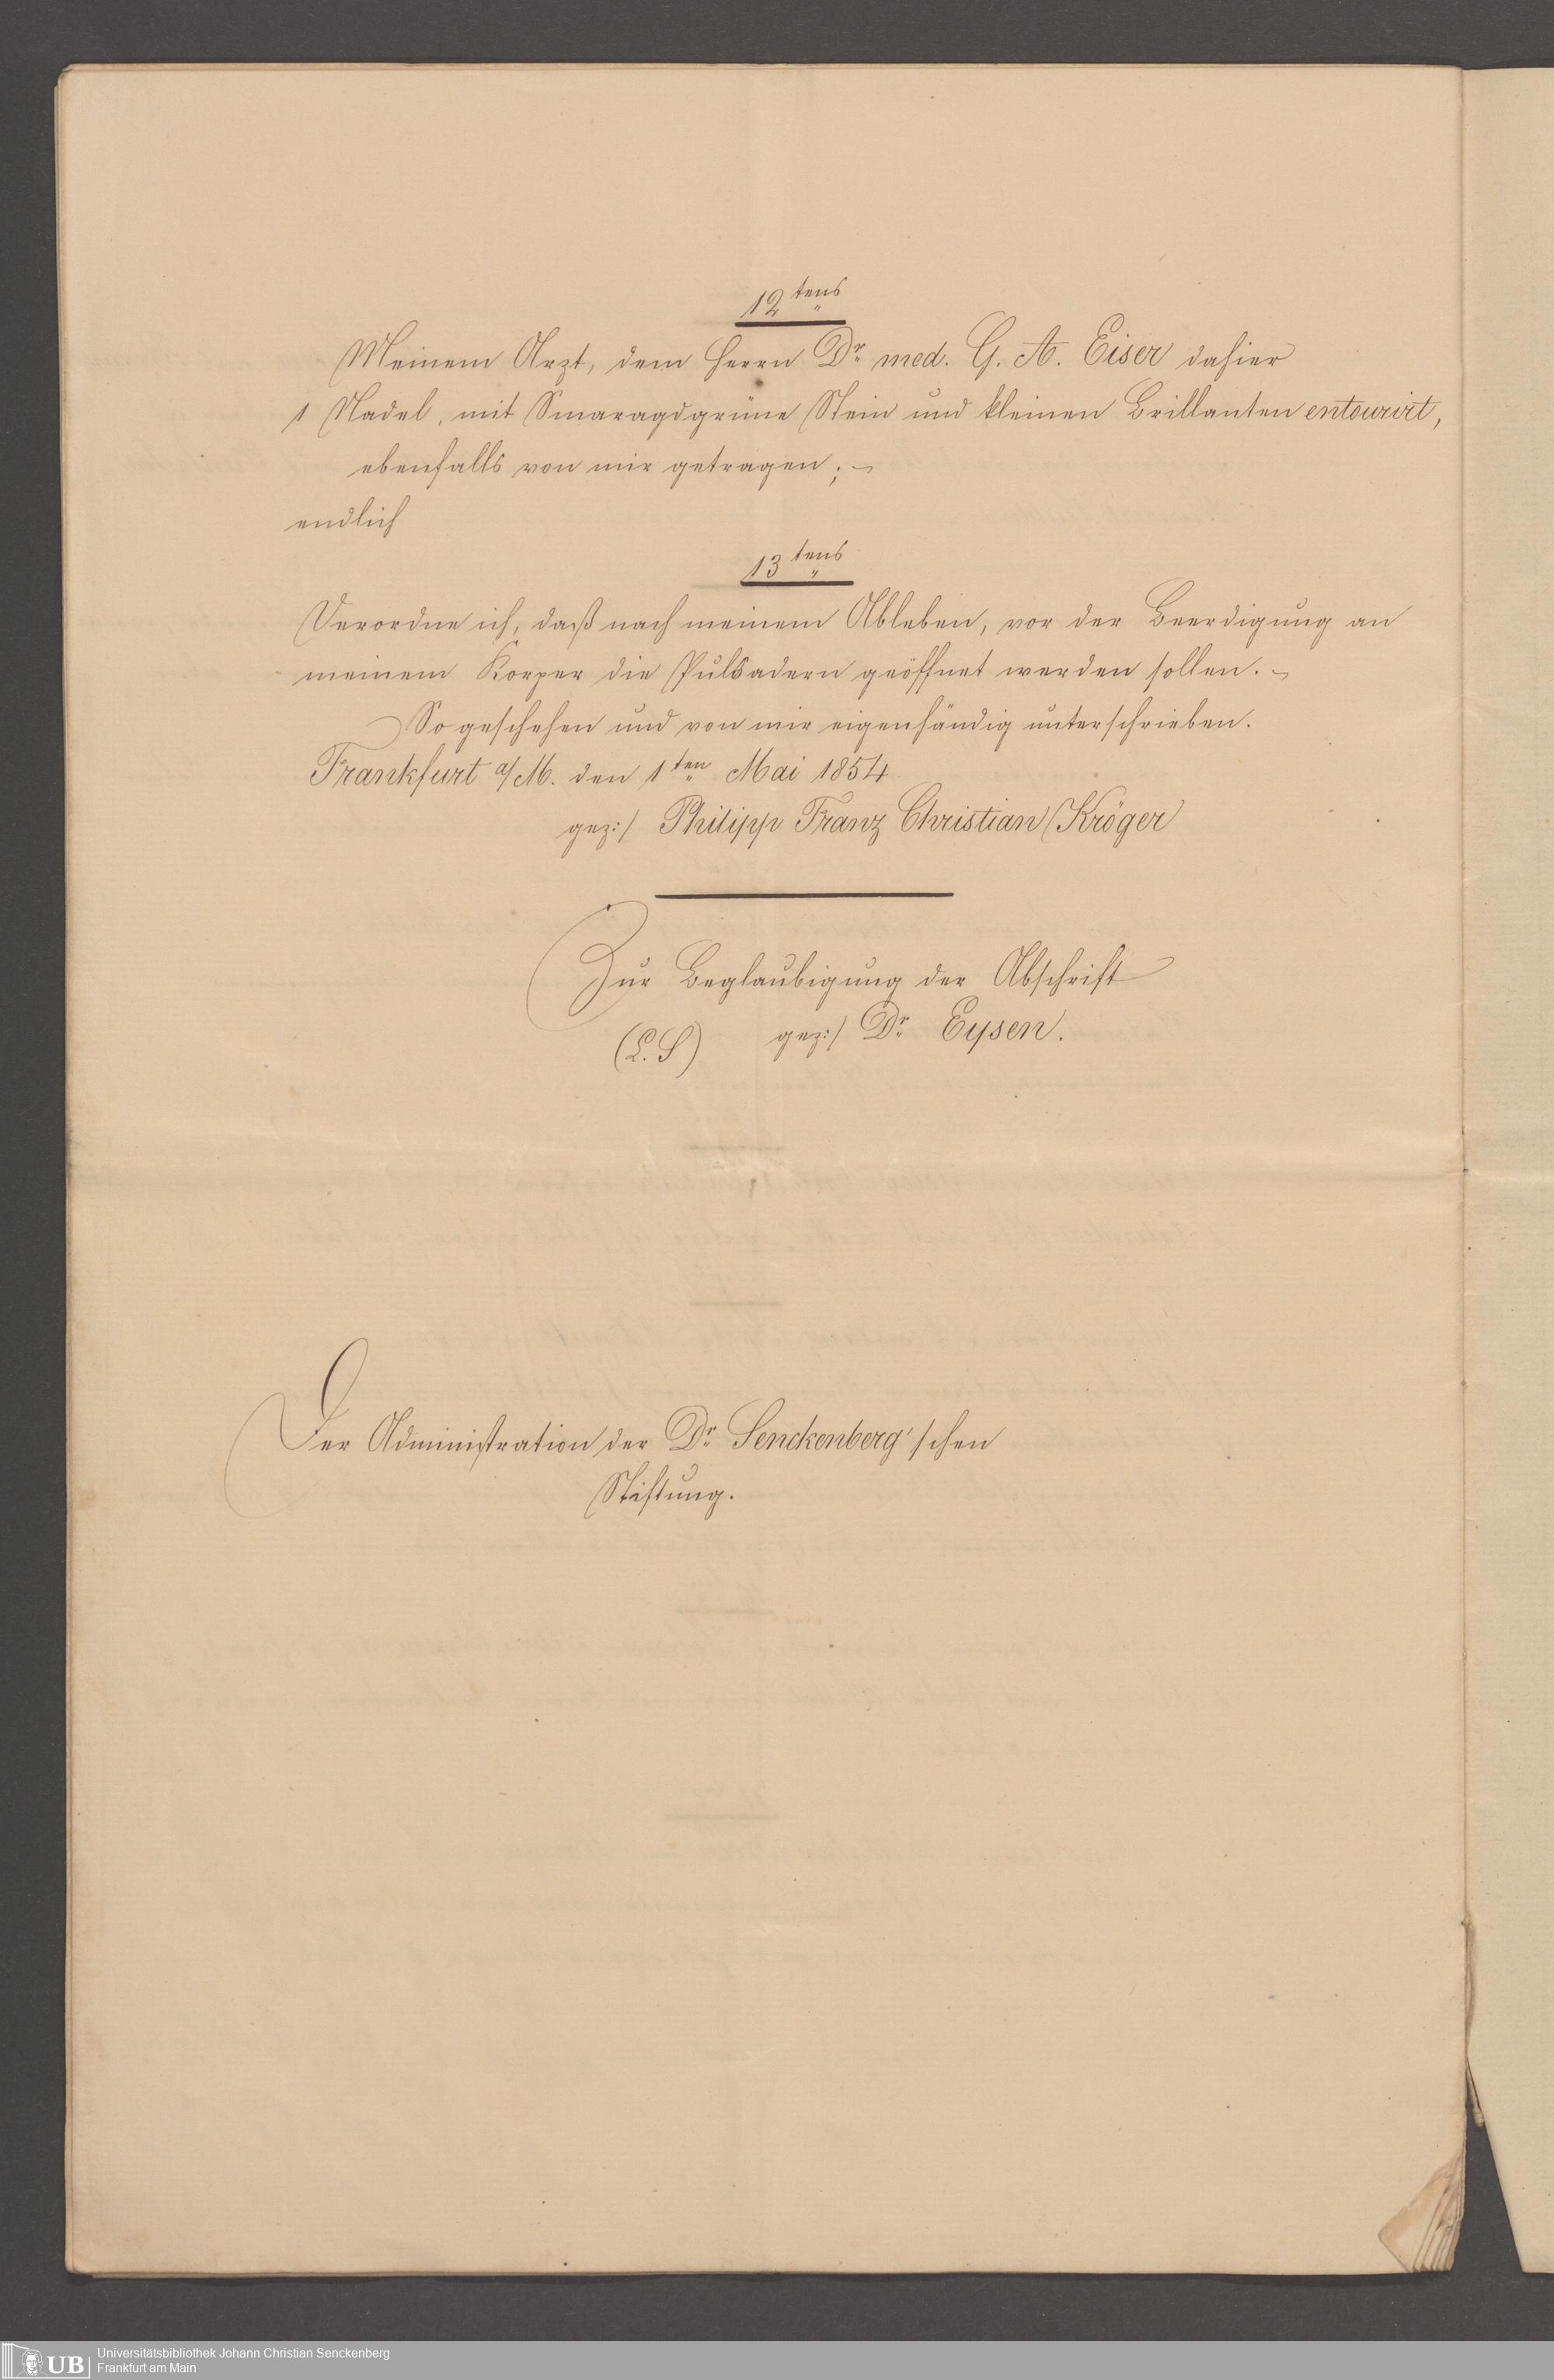 12tens
Meinem Arzt, dem Herrn Dr. med. G. A. Eiser dahier
1 Nadel, mit Smaragdgrüne Stein und kleinen Brillanten entourirt,
ebenfalls von mir getragen; –
endlich
13tens
Verordne ich, daß nach meinem Ableben, vor der Beerdigung an
meinem Korper die Pulsadern geöffnet werden sollen. –
So geschehen und von mir eigenhändig unterschrieben.
Frankfurt a/M. den 1ten Mai 1854
gez:/ Philipp Franz Christian Kröger
Zur Beglaubigung der Abschrift
(L. S) gez:/ Dr. Eysen.
Der Administration der Dr. Senckenberg'schen
Stiftung.
UB Universitätsbibliothek Johann Christian Senckenberg
Frankfurt am Main